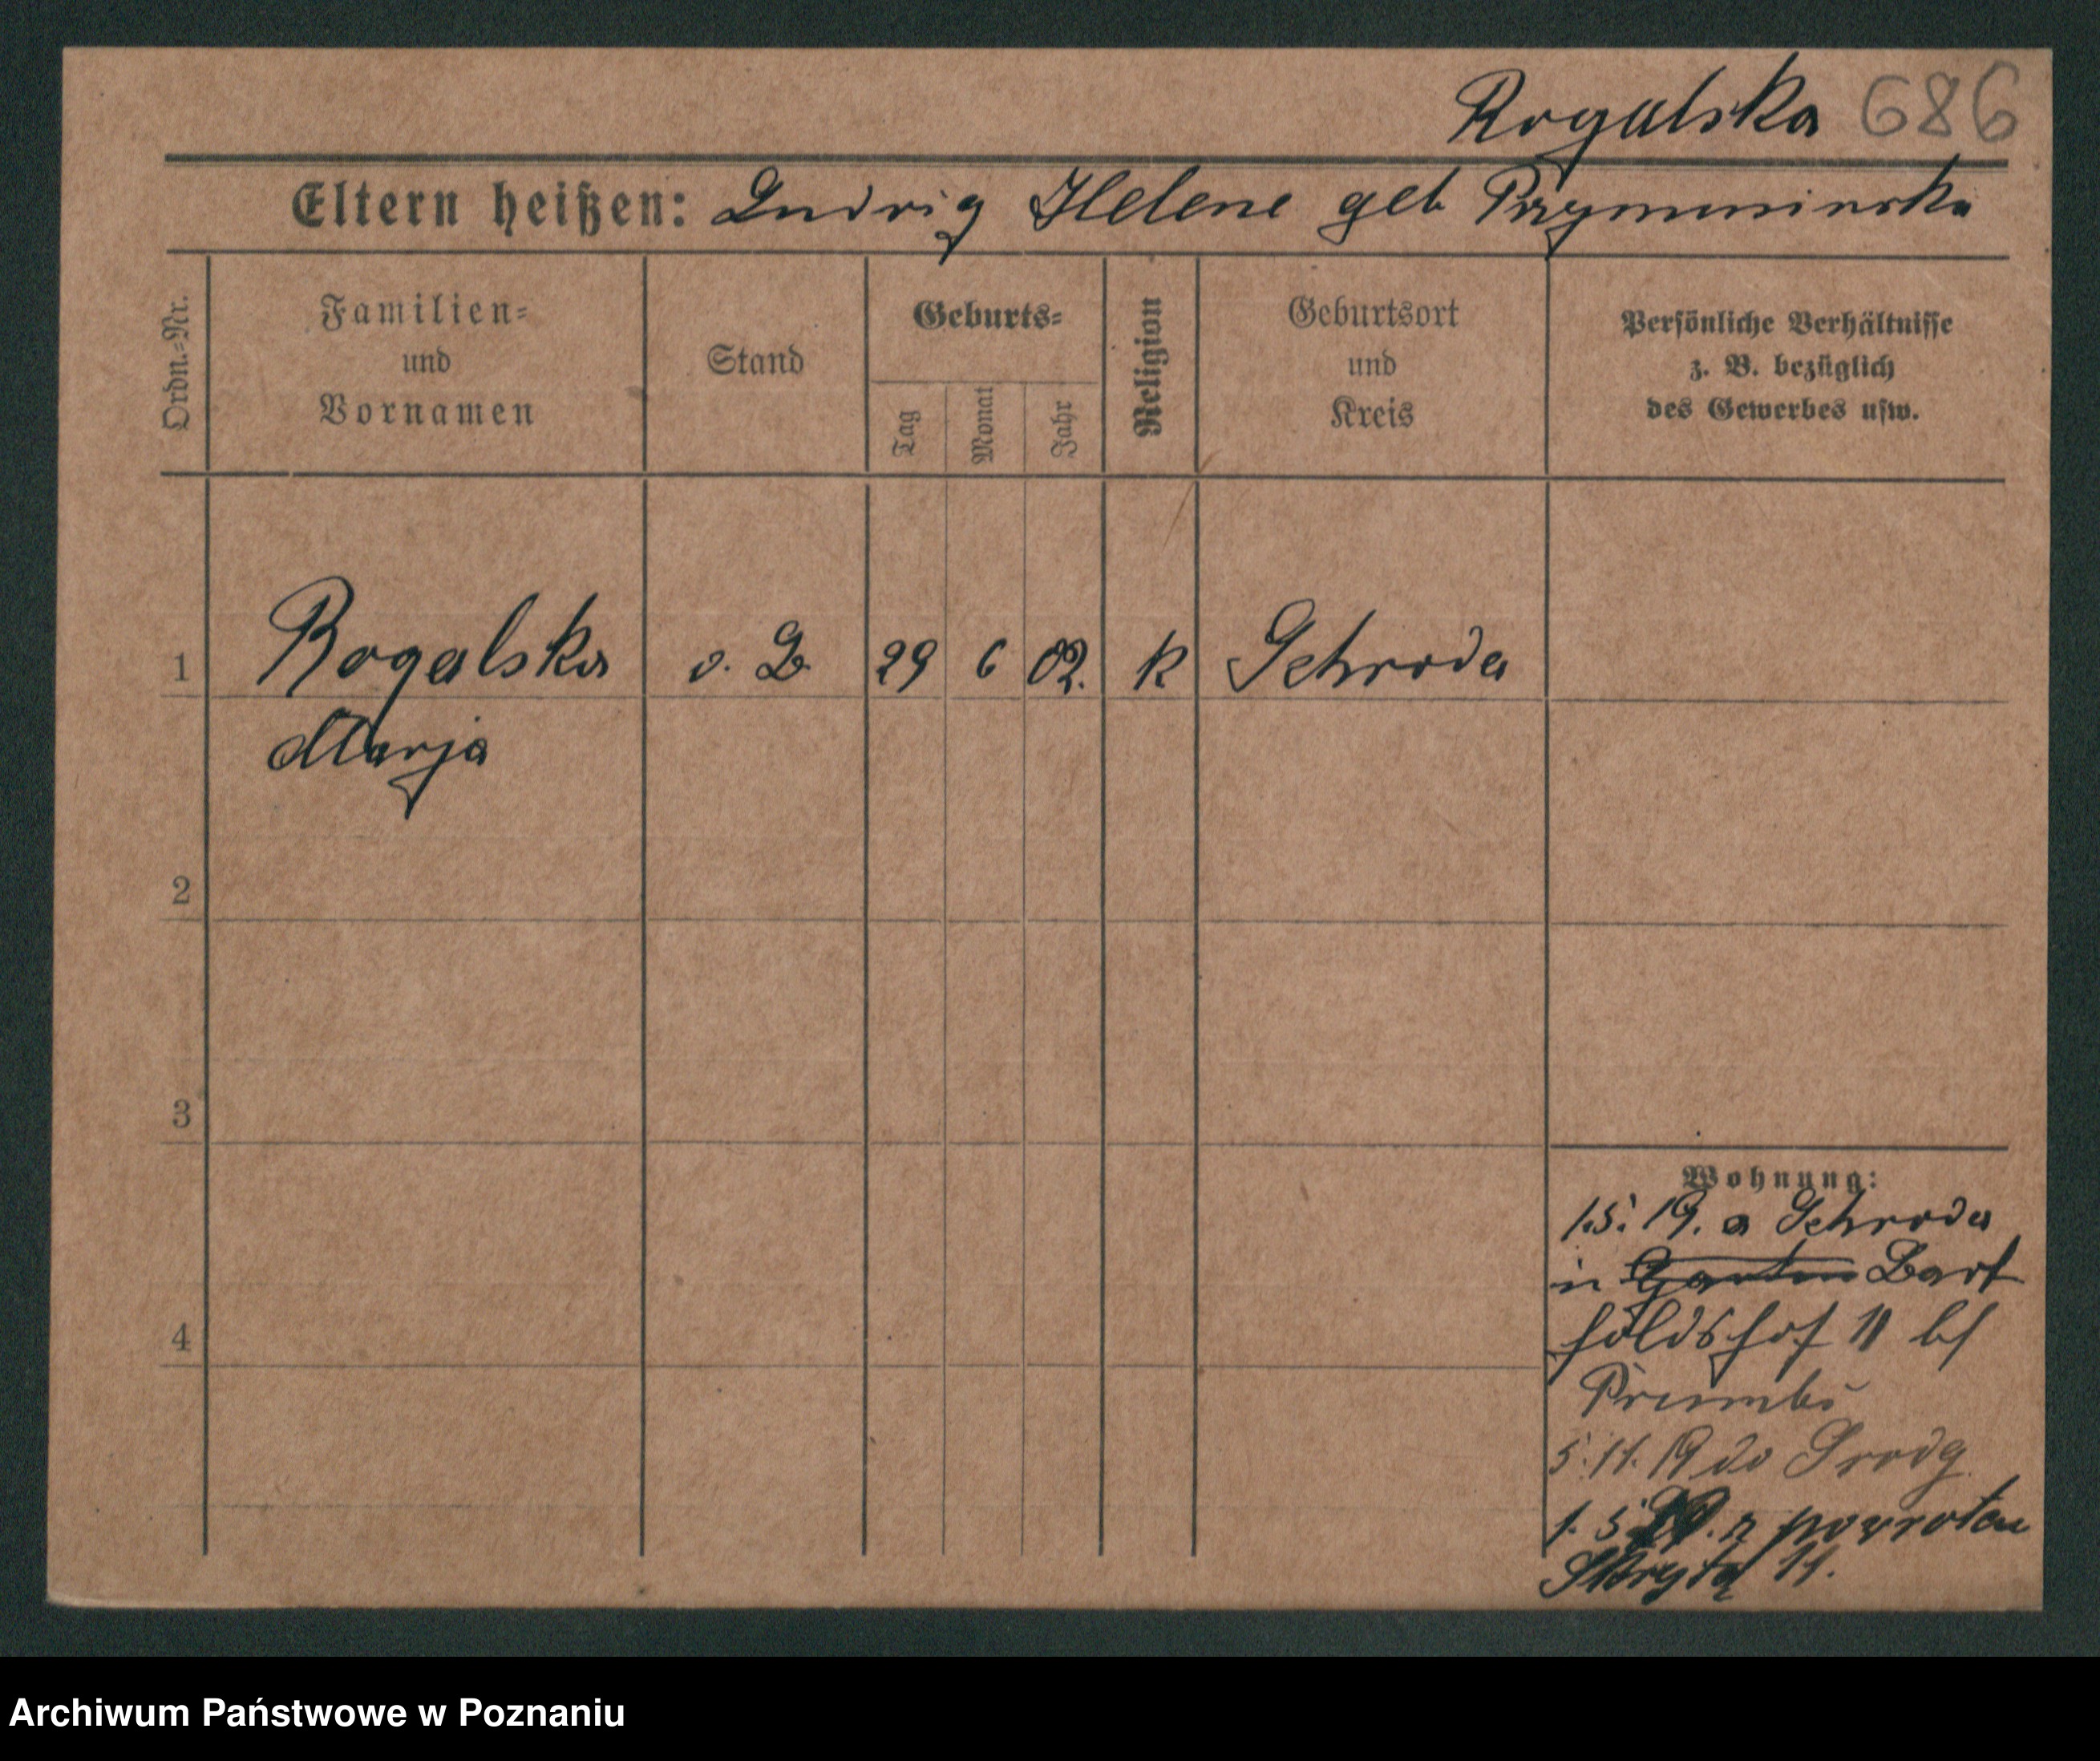 Rogalska 686
Eltern heißen: Ludwig Helene geb
Ordn.-Nr.
Familien-
und
Vornamen
Stand
Geburts-
Tag
Monat
Jahr
Religion
Geburtsort
und
Kreis
Persönliche Verhältnisse
z. B. bezüglich
des Gewerbes usw.
1 Rogalska o. B 29 6 02. K Schroda
Marja
2
3
4
Wohnung:
1.5. 19. a Schroda
in Garten Bart
holdshof 11 bf
5.11.19 do Srodą
1. 5 20. z powrotem
Skrytą 11.
Archiwum Państwowe w Poznaniu